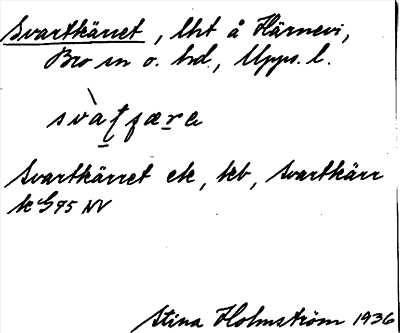 Svartkärret, lht å Härnevi,
Bro sn o. hd., Upps. l.
Svartkärret ek, kb, Svartkärr
k G95 NV
Stina Holmström 1936